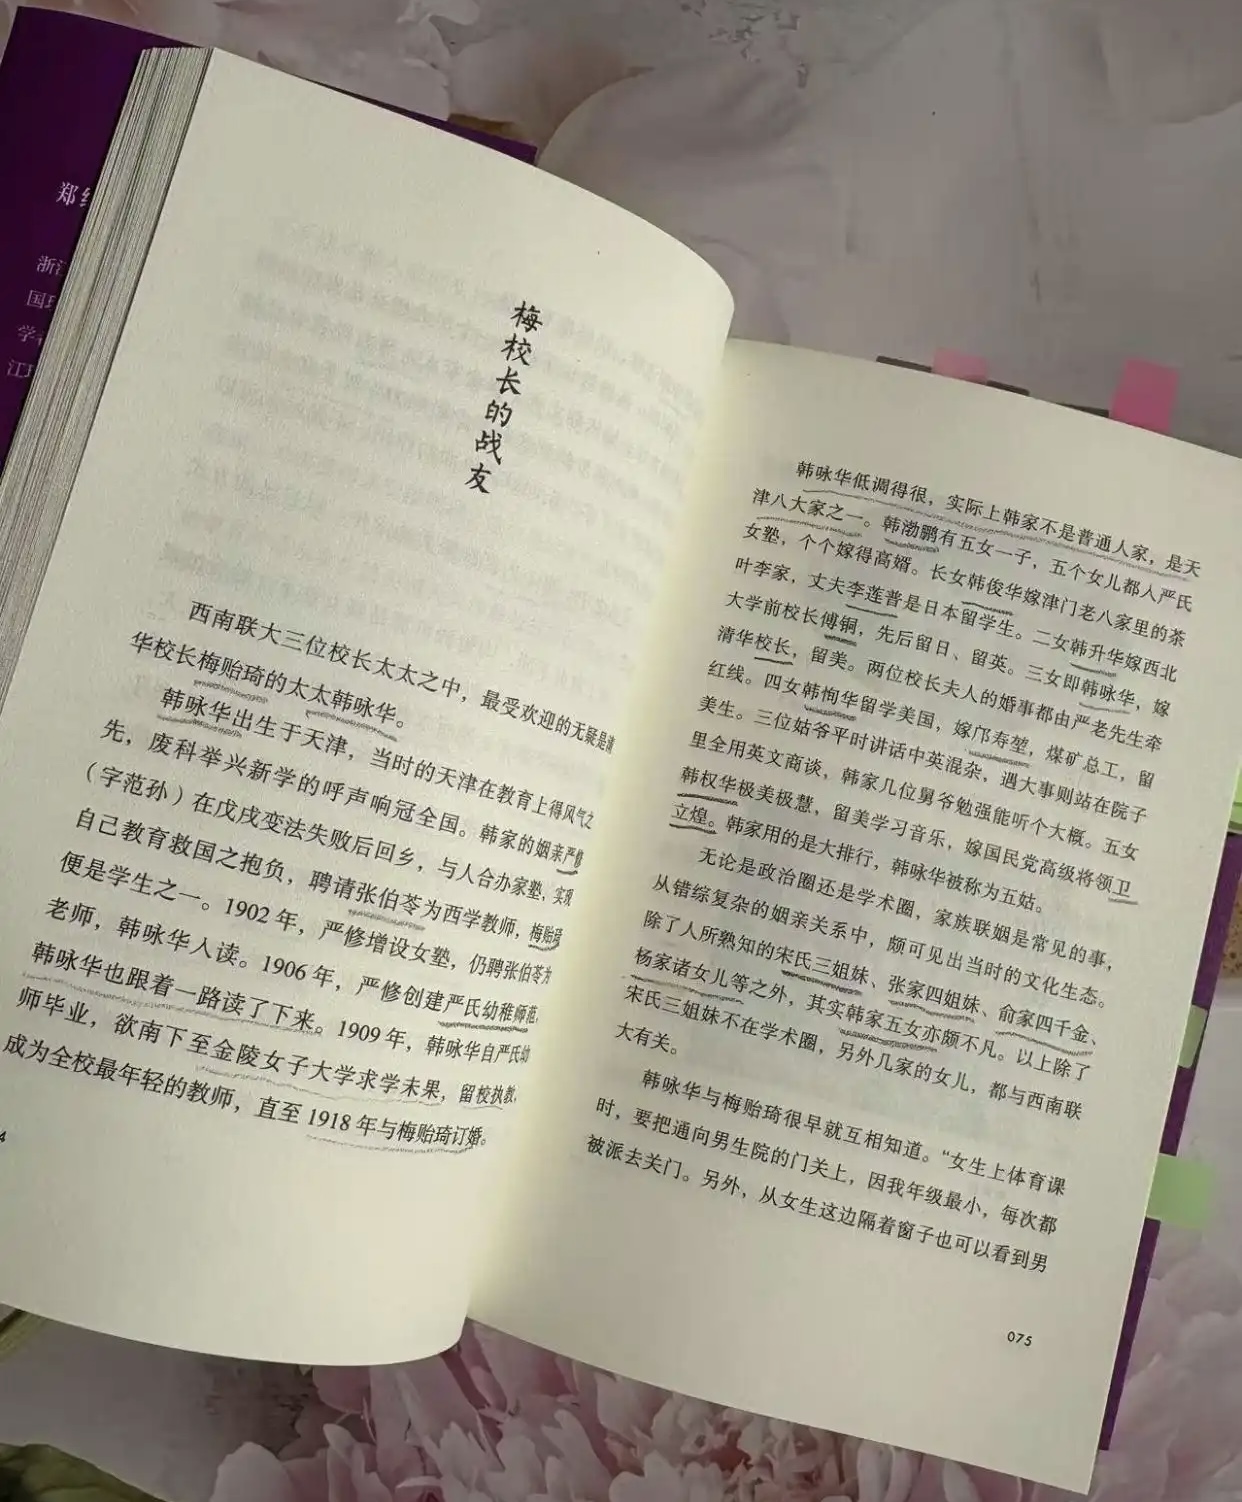 郑
浙江
国
学
江
梅校长的战友
西南联大三位校长太太之中，最受欢迎的无疑是清
华校长梅贻琦的太太韩咏华。
韩咏华出生于天津，当时的天津在教育上得风气之
先，废科举兴新学的呼声响冠全国。韩家的姻亲严修
（字范孙）在戊戌变法失败后回乡，与人合办家塾，实现
自己教育救国之抱负，聘请张伯苓为西学教师，梅贻琦
便是学生之一。1902年，严修增设女塾，仍聘张伯苓为
老师，韩咏华入读。1906年，严修创建严氏幼稚师范，
韩咏华也跟着一路读了下来。1909年，韩咏华自严氏幼
师毕业，欲南下至金陵女子大学求学未果，留校执教，
成为全校最年轻的教师，直至1918年与梅贻琦订婚。
4
韩咏华低调得很，实际上韩家不是普通人家，是天
津八大家之一。韩渤鹏有五女一子，五个女儿都入严氏
女塾，个个嫁得高婿。长女韩俊华嫁津门老八家里的茶
叶李家，丈夫李莲普是日本留学生。二女韩升华嫁西北
大学前校长傅铜，先后留日、留英。三女即韩咏华，嫁
清华校长，留美。两位校长夫人的婚事都由严老先生牵
红线。四女韩恂华留学美国，嫁邝寿堃，煤矿总工，留
美生。三位姑爷平时讲话中英混杂，遇大事则站在院子
里全用英文商谈，韩家几位舅爷勉强能听个大概。五女
韩权华极美极慧，留美学习音乐，嫁国民党高级将领卫
立煌。韩家用的是大排行，韩咏华被称为五姑。
无论是政治圈还是学术圈，家族联姻是常见的事，
从错综复杂的姻亲关系中，颇可见出当时的文化生态。
除了人所熟知的宋氏三姐妹、张家四姐妹、俞家四千金、
杨家诸女儿等之外，其实韩家五女亦颇不凡。以上除了
宋氏三姐妹不在学术圈，另外几家的女儿，都与西南联
大有关。
韩咏华与梅贻琦很早就互相知道。“女生上体育课
时，要把通向男生院的门关上，因我年级最小，每次都
被派去关门。另外，从女生这边隔着窗子也可以看到男
075